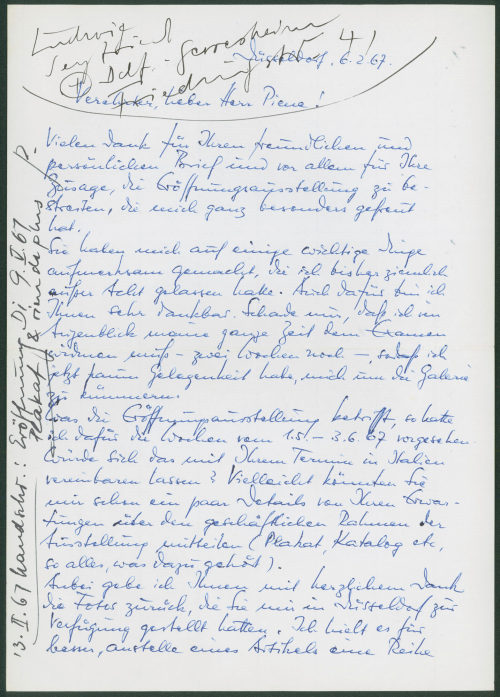 Ludwig
4!
Düsseldorf, 6.2.67.
Verehrter, lieber Herr Piene!
Vielen Dank für Ihren freundlichen und
persönlichen Brief und vor allem für Ihre
Zusage, die Eröffnungsausstellung zu be-
streiten, die mich ganz besonders gefreut
hat.
Sie haben mich auf einige wichtige Dinge
aufmerksam gemacht, die ich bisher ziemlich
außer Acht gelassen hatte. Auch dafür bin ich
Ihnen sehr dankbar. Schade nur, daß ich im
Augenblick meine ganze Zeit dem Examen
widmen muß – zwei Wochen noch –, sodaß ich
jetzt kaum Gelegenheit habe, mich um die Galerie
zu kümmern.
Was die Eröffnungsausstellung betrifft, so hatte
ich dafür die Wochen vom 1.5. – 3.6.67 vorgesehen.
Würde sich das mit Ihrem Termin in Italien
vereinbaren lassen? Vielleicht könnten Sie
mir schon ein paar Details von Ihren Erwar-
tungen über den geschäftlichen Rahmen der
Ausstellung mitteilen (Plakat, Katalog etc,
so alles, was dazu gehört).
Anbei gebe ich Ihnen mit herzlichem Dank
die Fotos zurück, die Sie mir in Düsseldorf zur
Verfügung gestellt hatten. Ich hielt es für
besser, anstelle eines Artikels eine Reihe
13. II. 67 handschr.: Eröffnung Di 9. 67 P.
Plakat &